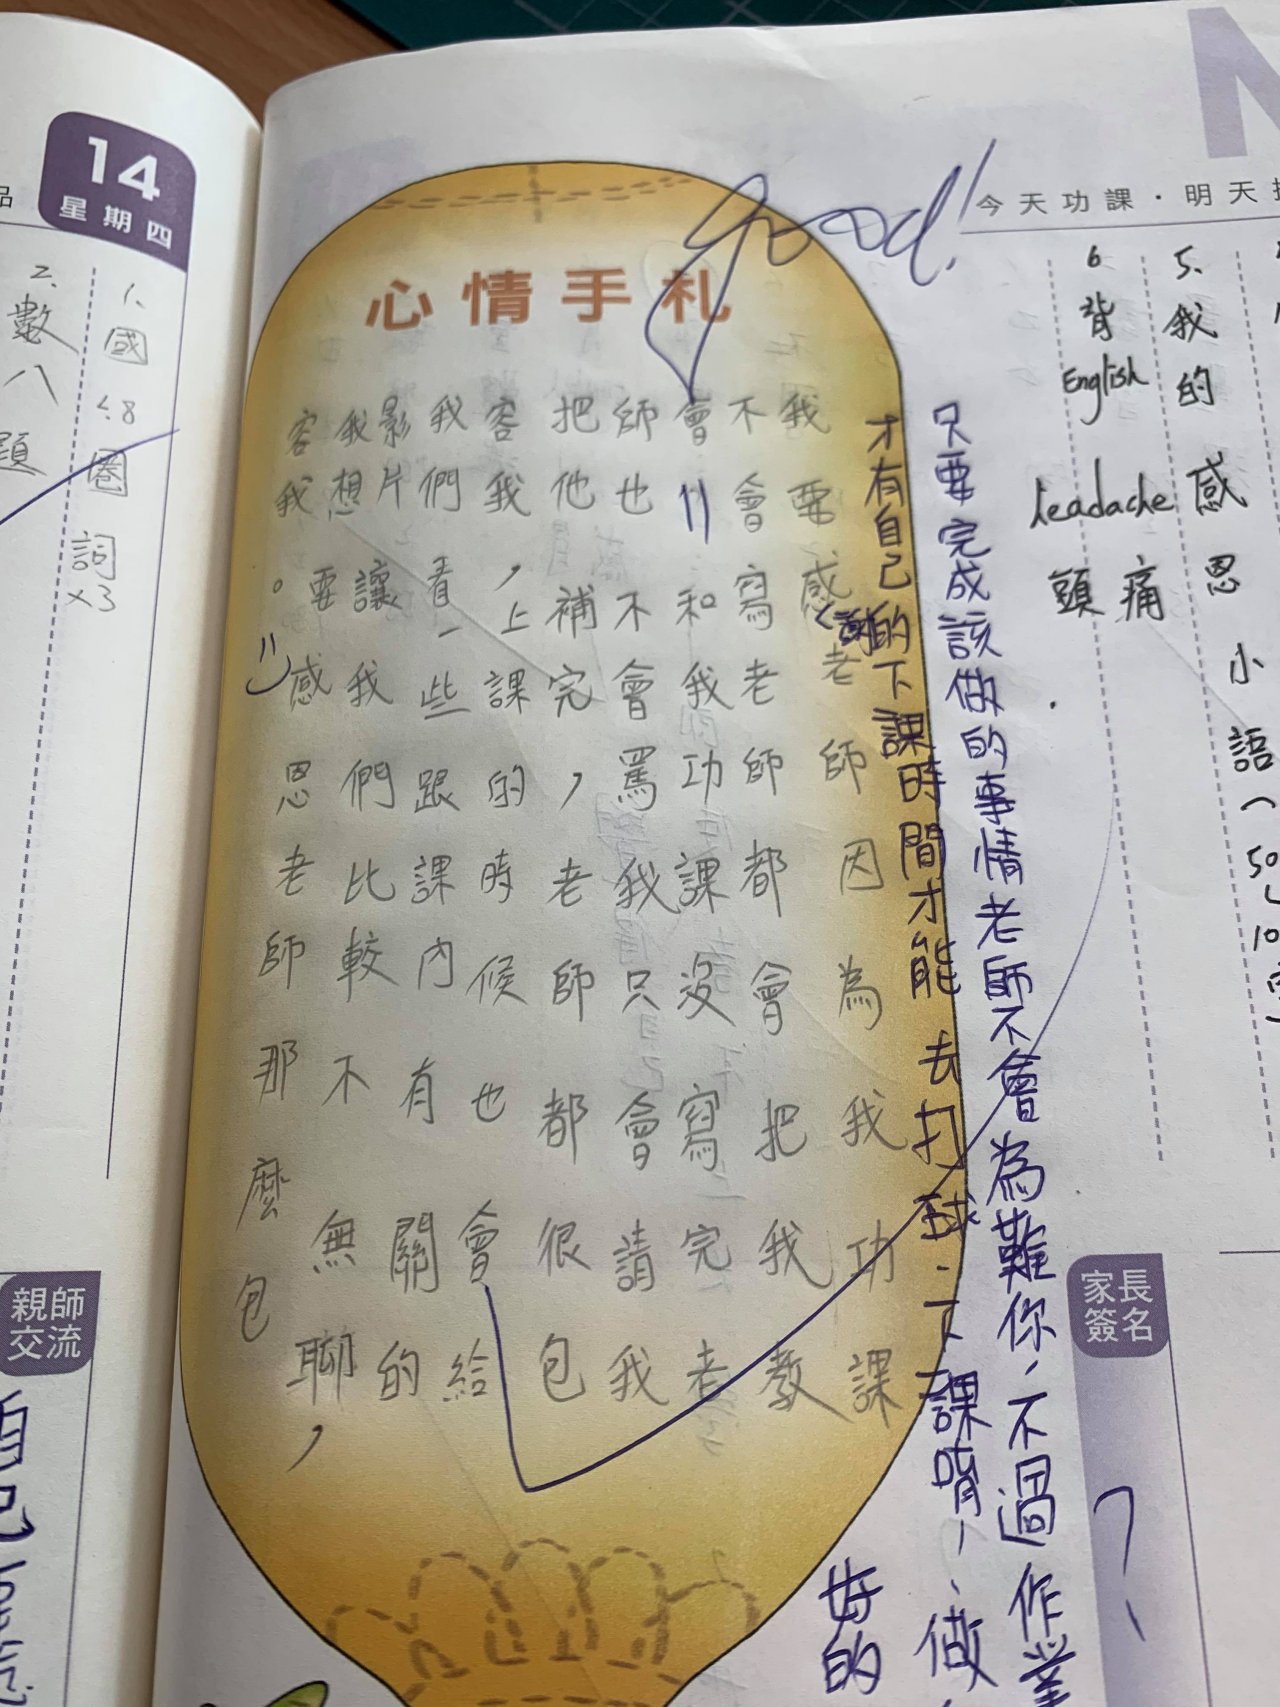 今天功課·明天
5、我的感恩小語(50~100字)
6 背English headache 頭痛
good!
心情手札
只要完成該做的事情老師不會為難你,不過作業
才有自己的下課時間才能去打球、下課唷,、做
好的
我要感謝老師因為我功課
不會寫老師都會把我教
會和我功課沒寫完老
師也不會罵我只會請我
把他補完,老師都很包
容我,上課的時候也會給
我們看一些跟課內有關的
影片
我想讓我們比較不無聊,
要感恩老師那麼包
容我。
家長簽名
14
星期四
1、國 48 圈詞x3
2、數八題
親師交流
自己
品